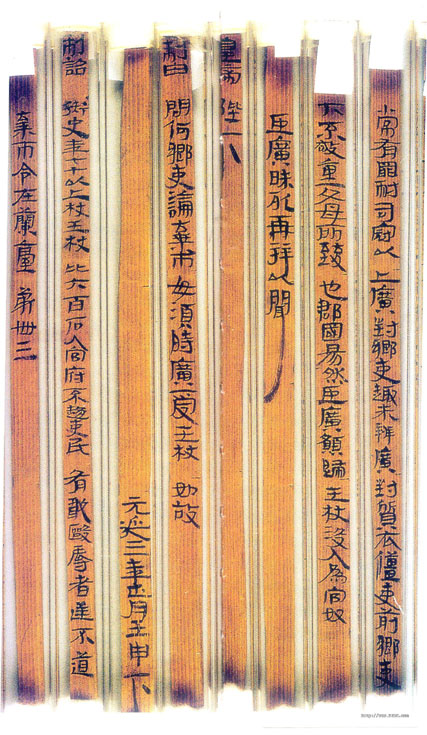 常有罪耐司寇以上廣對鄉吏趣未辨廣對質衣僵吏前鄉吏
下不敬重父母所致也郡國易然臣廣願歸王杖沒入為官奴
臣廣昧死再拜以聞
皇帝陛下
制曰問何鄉吏論棄市毋須時廣受王杖如故
元延三年正月壬申下
制詔御史年七十以上杖王杖比六百石入官府不趨吏民有敢毆辱者逆不道
棄市令在蘭臺第卅三